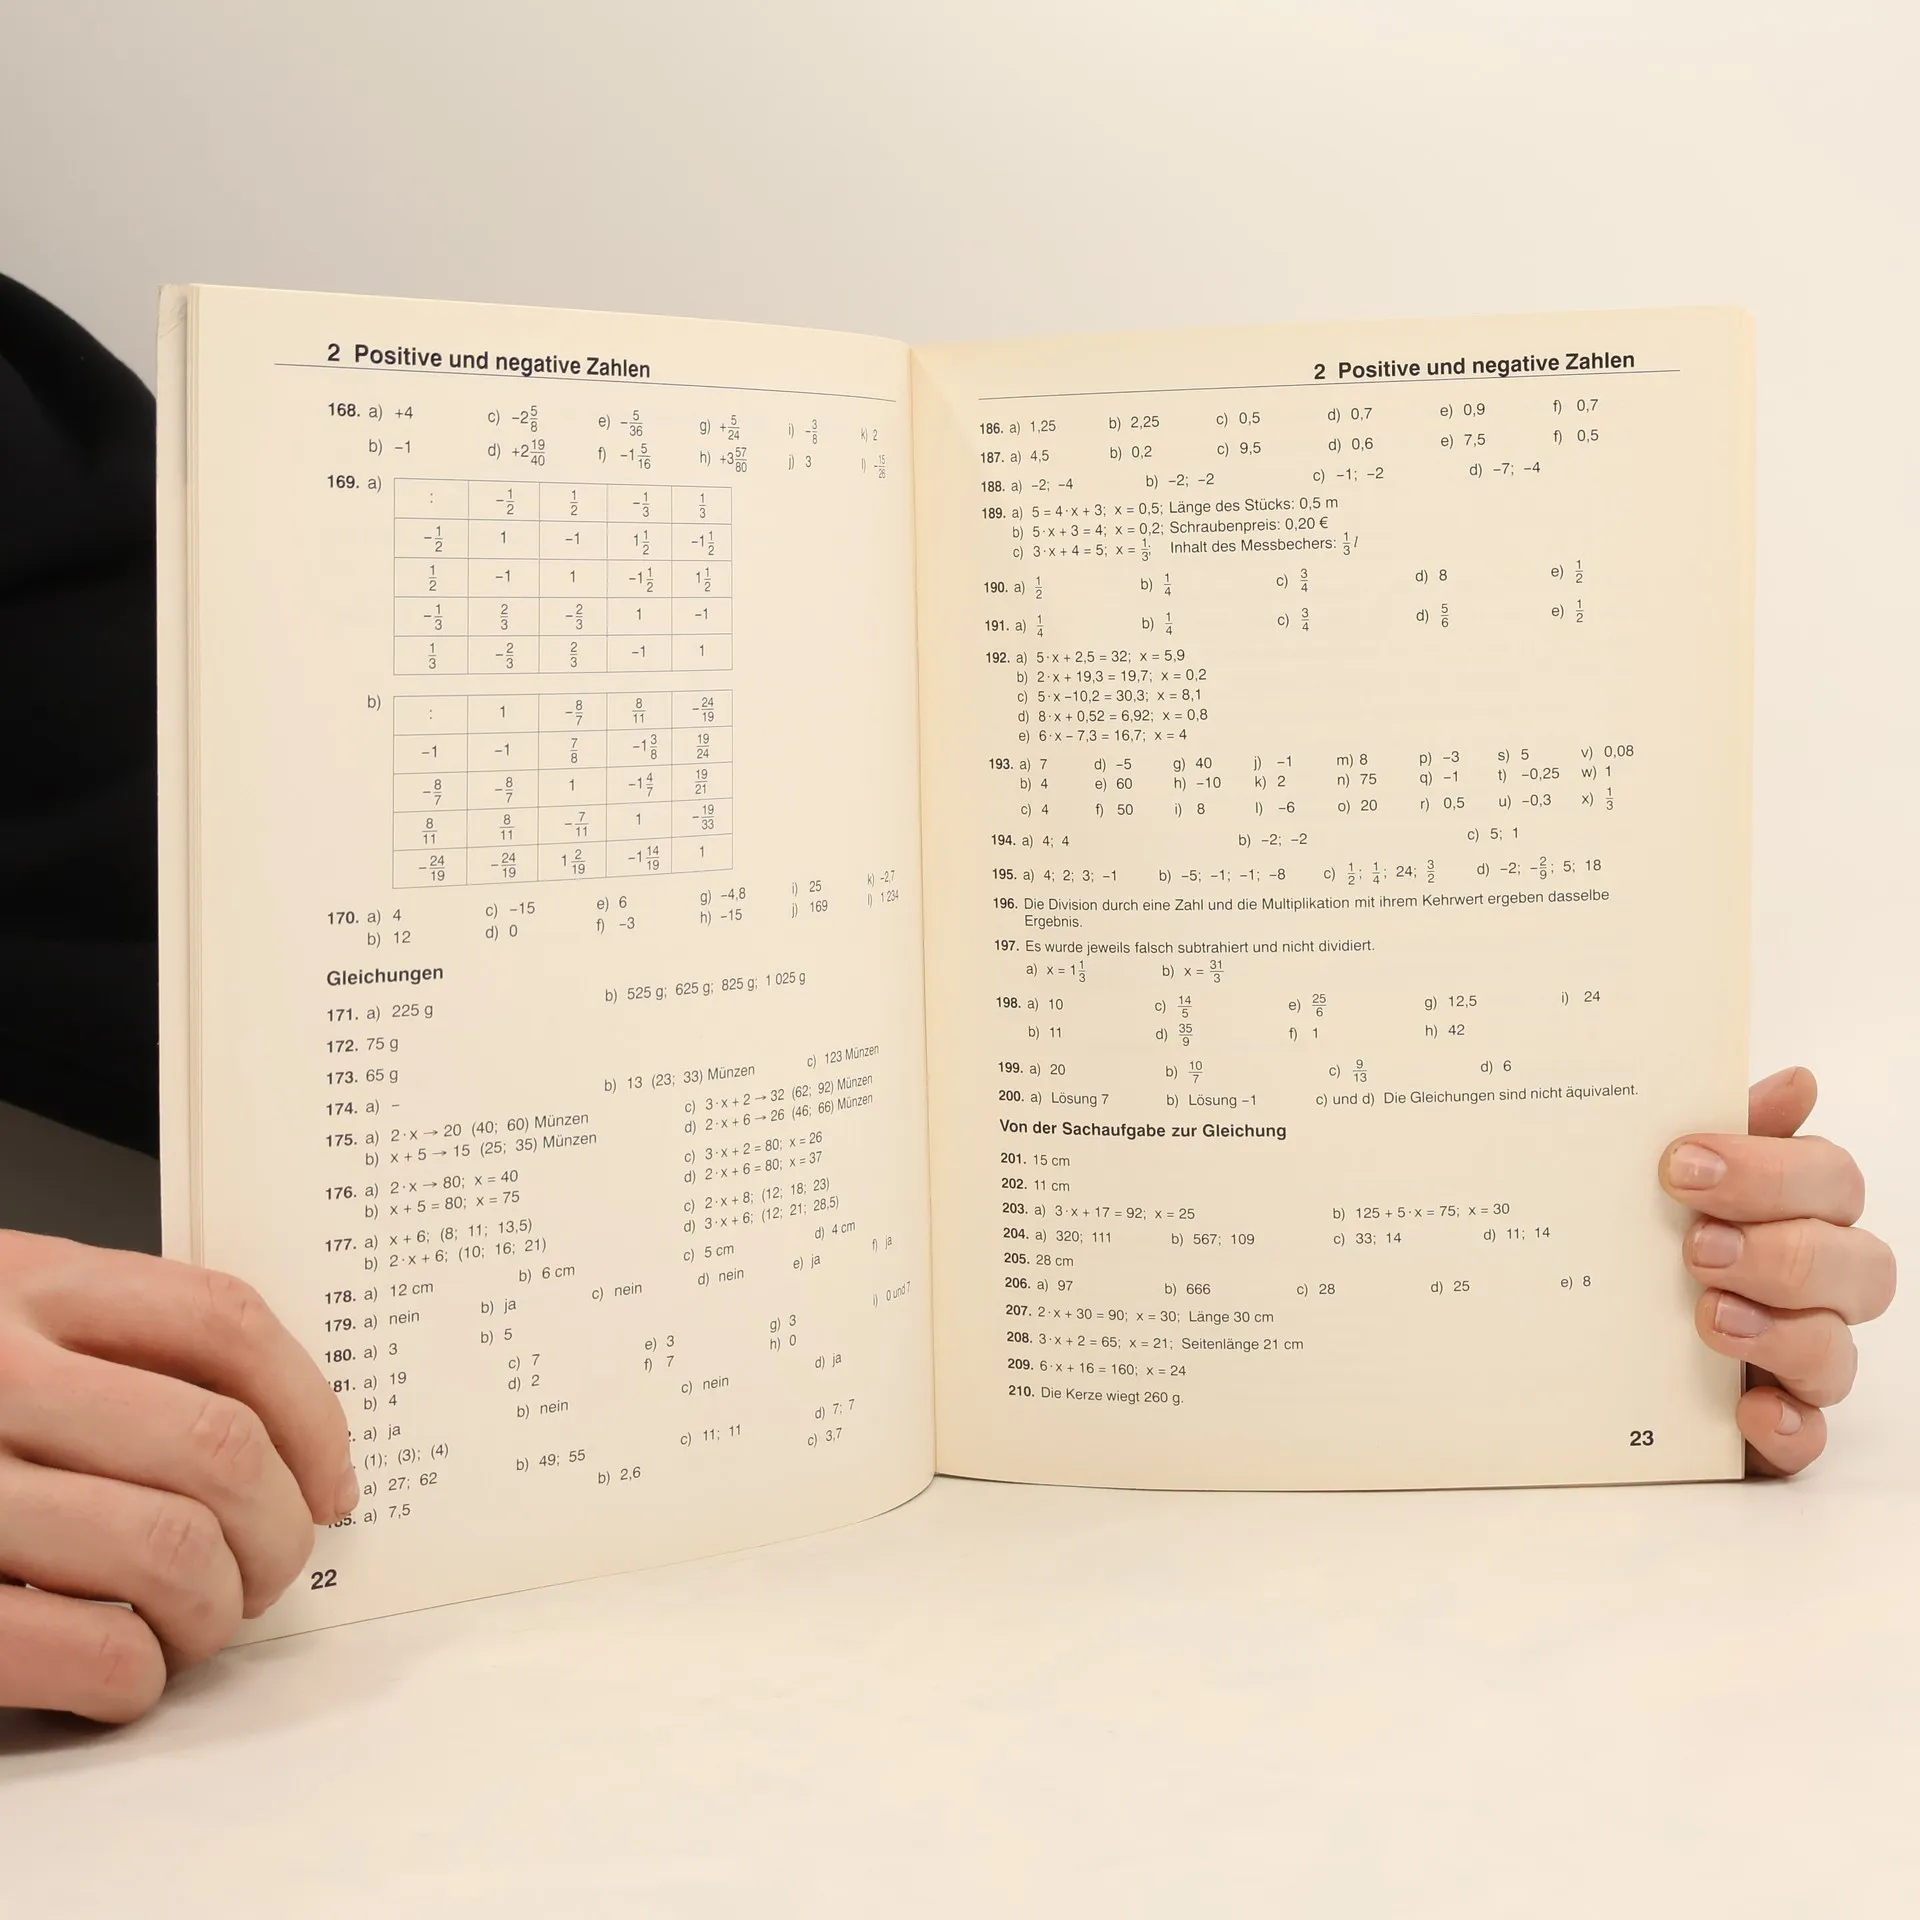 2 Positive und negative Zahlen
168. a) +4 c) −2 5/8 e) −5/36 g) +5/24 i) −3/8 k) 2
b) −1 d) +2 19/40 f) −1 5/16 h) +3 57/80 j) 3 l) −15/26
169. a)
: −1/2 1/2 −1/3 1/3
−1/2 1 −1 1 1/2 −1 1/2
1/2 −1 1 −1 1/2 1 1/2
−1/3 2/3 −2/3 1 −1
1/3 −2/3 2/3 −1 1
b)
: 1 −8/7 8/11 −24/19
−1 −1 7/8 −1 3/8 19/24
−8/7 −8/7 1 −1 4/7 19/21
8/11 8/11 −7/11 1 −19/33
−24/19 −24/19 1 2/19 −1 14/19 1
170. a) 4 c) −15 e) 6 g) −4,8 i) 25 k) −2,7
b) 12 d) 0 f) −3 h) −15 j) 169 l) 1 234
Gleichungen
171. a) 225 g b) 525 g; 625 g; 825 g; 1 025 g
172. 75 g
173. 65 g
174. a) − b) 13 (23; 33) Münzen c) 123 Münzen
175. a) 2·x → 20 (40; 60) Münzen c) 3·x + 2 → 32 (62; 92) Münzen
b) x + 5 → 15 (25; 35) Münzen d) 2·x + 6 → 26 (46; 66) Münzen
176. a) 2·x → 80; x = 40 c) 3·x + 2 = 80; x = 26
b) x + 5 = 80; x = 75 d) 2·x + 6 = 80; x = 37
177. a) x + 6; (8; 11; 13,5) c) 2·x + 8; (12; 18; 23)
b) 2·x + 6; (10; 16; 21) d) 3·x + 6; (12; 21; 28,5)
178. a) 12 cm b) 6 cm c) 5 cm d) 4 cm
179. a) nein b) ja c) nein d) nein e) ja f) ja
180. a) 3 b) 5
81. a) 19 c) 7 e) 3 g) 3 i) 0 und 7
b) 4 d) 2 f) 7 h) 0
a) ja b) nein c) nein d) ja
(1); (3); (4)
a) 27; 62 b) 49; 55 c) 11; 11 d) 7; 7
a) 7,5 b) 2,6 c) 3,7
22
2 Positive und negative Zahlen
186. a) 1,25 b) 2,25 c) 0,5 d) 0,7 e) 0,9 f) 0,7
187. a) 4,5 b) 0,2 c) 9,5 d) 0,6 e) 7,5 f) 0,5
188. a) −2; −4 b) −2; −2 c) −1; −2 d) −7; −4
189. a) 5 = 4·x + 3; x = 0,5; Länge des Stücks: 0,5 m
b) 5·x + 3 = 4; x = 0,2; Schraubenpreis: 0,20 €
c) 3·x + 4 = 5; x = 1/3; Inhalt des Messbechers: 1/3 l
190. a) 1/2 b) 1/4 c) 3/4 d) 8 e) 1/2
191. a) 1/4 b) 1/4 c) 3/4 d) 5/6 e) 1/2
192. a) 5·x + 2,5 = 32; x = 5,9
b) 2·x + 19,3 = 19,7; x = 0,2
c) 5·x −10,2 = 30,3; x = 8,1
d) 8·x + 0,52 = 6,92; x = 0,8
e) 6·x − 7,3 = 16,7; x = 4
193. a) 7 d) −5 g) 40 j) −1 m) 8 p) −3 s) 5 v) 0,08
b) 4 e) 60 h) −10 k) 2 n) 75 q) −1 t) −0,25 w) 1
c) 4 f) 50 i) 8 l) −6 o) 20 r) 0,5 u) −0,3 x) 1/3
194. a) 4; 4 b) −2; −2 c) 5; 1
195. a) 4; 2; 3; −1 b) −5; −1; −1; −8 c) 1/2; 1/4; 24; 3/2 d) −2; −2/9; 5; 18
196. Die Division durch eine Zahl und die Multiplikation mit ihrem Kehrwert ergeben dasselbe
Ergebnis.
197. Es wurde jeweils falsch subtrahiert und nicht dividiert.
a) x = 1 1/3 b) x = 31/3
198. a) 10 c) 14/5 e) 25/6 g) 12,5 i) 24
b) 11 d) 35/9 f) 1 h) 42
199. a) 20 b) 10/7 c) 9/13 d) 6
200. a) Lösung 7 b) Lösung −1 c) und d) Die Gleichungen sind nicht äquivalent.
Von der Sachaufgabe zur Gleichung
201. 15 cm
202. 11 cm
203. a) 3·x + 17 = 92; x = 25 b) 125 + 5·x = 75; x = 30
204. a) 320; 111 b) 567; 109 c) 33; 14 d) 11; 14
205. 28 cm
206. a) 97 b) 666 c) 28 d) 25 e) 8
207. 2·x + 30 = 90; x = 30; Länge 30 cm
208. 3·x + 2 = 65; x = 21; Seitenlänge 21 cm
209. 6·x + 16 = 160; x = 24
210. Die Kerze wiegt 260 g.
23